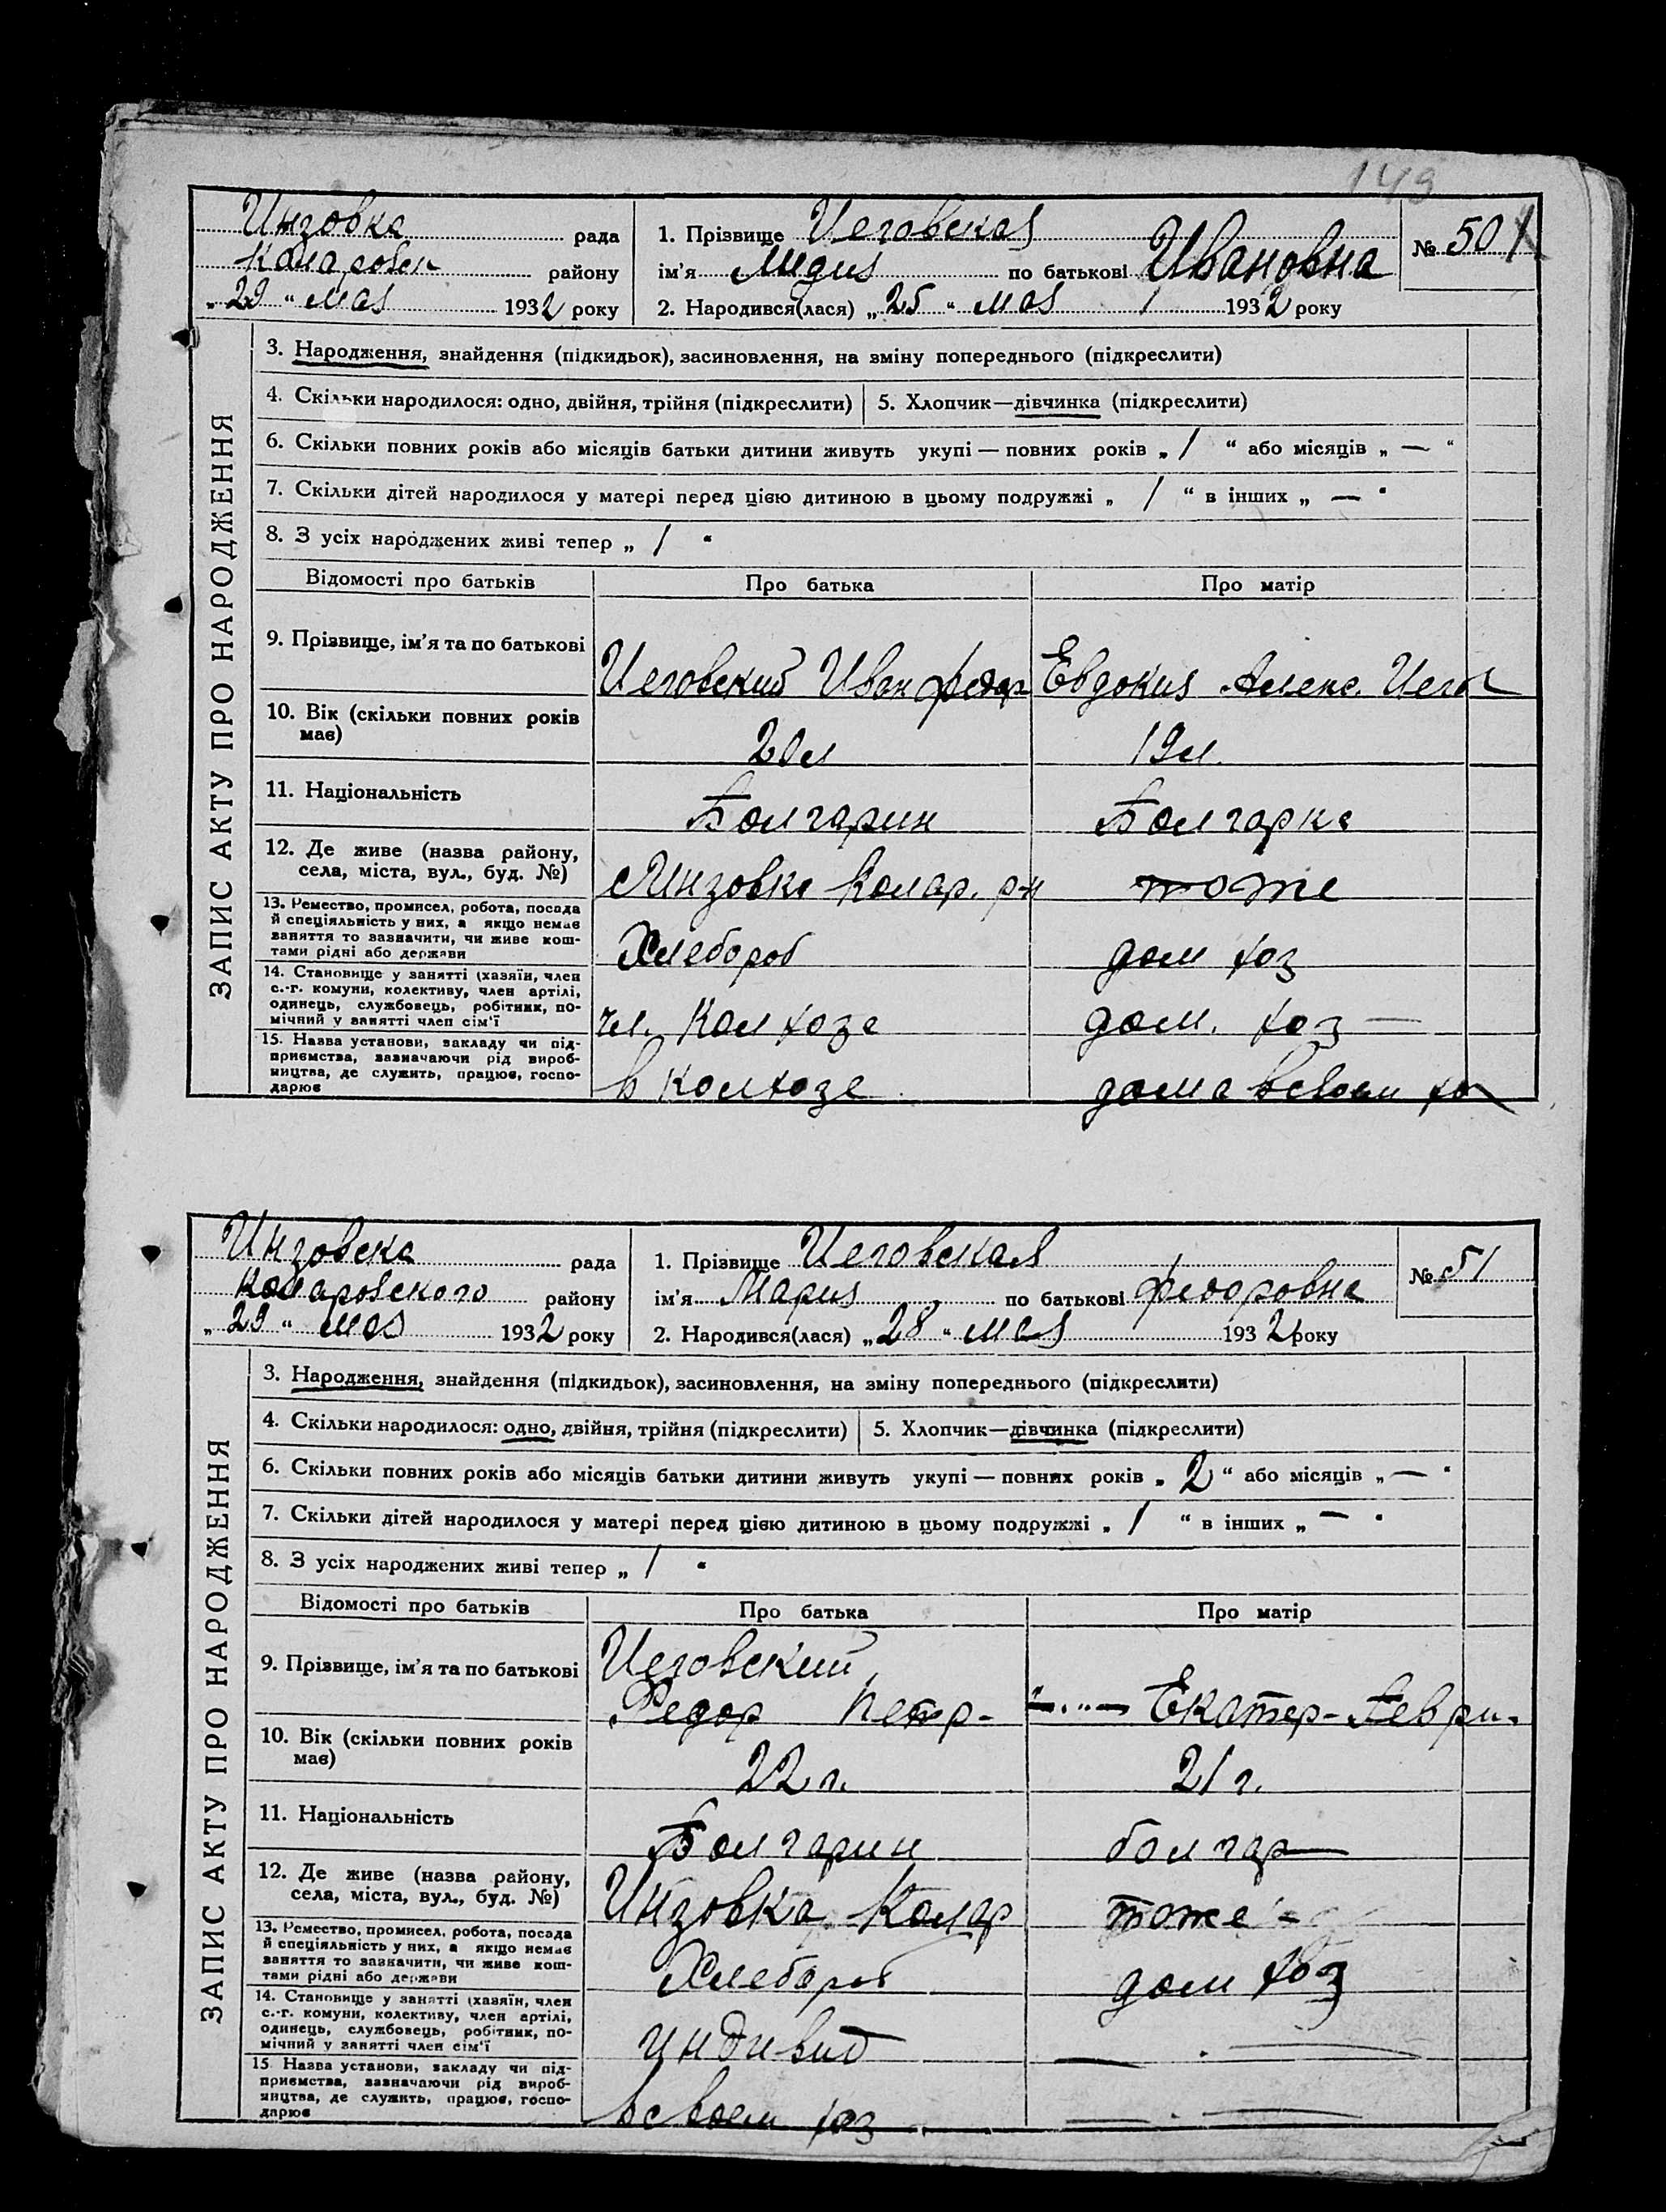 149
Инзовка рада
Коларовск району
„29“ мая 1932 року
1. Прізвище Чеговская
ім'я Лидия по батькові Ивановна
2. Народився(лася) „25“ мая 1932 року
№ 50
ЗАПИС АКТУ ПРО НАРОДЖЕННЯ
3. Народження, знайдення (підкидьок), засиновлення, на зміну попереднього (підкреслити)
4. Скільки народилося: одно, двійня, трійня (підкреслити) 5. Хлопчик—дівчинка (підкреслити)
6. Скільки повних років або місяців батьки дитини живуть укупі — повних років „ 1 “ або місяців „ — “
7. Скільки дітей народилося у матері перед цією дитиною в цьому подружжі „ 1 “ в інших „ — “
8. З усіх народжених живі тепер „ 1 “
Відомості про батьків Про батька Про матір
9. Прізвище, ім'я та по батькові
Чеговский Иван Федор Евдокия Алекс. Чего
10. Вік (скільки повних років
має)
20 л 19 л.
11. Національність
Болгарин Болгарка
12. Де живе (назва району,
села, міста, вул., буд. №)
с Инзовка Колар. р-н тоже
13. Ремество, промисел, робота, посада
й спеціяльність у них, а якщо немає
заняття то зазначити, чи живе кош-
тами рідні або держави
Хлебороб дом хоз
14. Становище у занятті (хазяїн, член
с.-г. комуни, колективу, член артілі,
одинець, службовець, робітник, по-
мічний у занятті член сім'ї
чл. Колхоза дом. хоз —
15. Назва установи, закладу чи під-
приємства, зазначаючи рід вироб-
ництва, де служить, працює, госпо-
дарює
в колхозе дома в своем хо
Инзовска рада
Коларовского району
„29“ мая 1932 року
1. Прізвище Чеговская
ім'я Мария по батькові Федоровна
2. Народився(лася) „28“ мая 1932 року
№ 51
ЗАПИС АКТУ ПРО НАРОДЖЕННЯ
3. Народження, знайдення (підкидьок), засиновлення, на зміну попереднього (підкреслити)
4. Скільки народилося: одно, двійня, трійня (підкреслити) 5. Хлопчик—дівчинка (підкреслити)
6. Скільки повних років або місяців батьки дитини живуть укупі — повних років „ 2 “ або місяців „ — “
7. Скільки дітей народилося у матері перед цією дитиною в цьому подружжі „ 1 “ в інших „ — “
8. З усіх народжених живі тепер „ 1 “
Відомості про батьків Про батька Про матір
Чеговский
9. Прізвище, ім'я та по батькові
Федор Петр- —„— Екатер-
10. Вік (скільки повних років
має)
22 г. 21 г.
11. Національність
Болгарин болгар—
12. Де живе (назва району,
села, міста, вул., буд. №)
Инзовка, Колар тоже -
13. Ремество, промисел, робота, посада
й спеціяльність у них, а якщо немає
заняття то зазначити, чи живе кош-
тами рідні або держави
Хлебороб дом хоз
14. Становище у занятті (хазяїн, член
с.-г. комуни, колективу, член артілі,
одинець, службовець, робітник, по-
мічний у занятті член сім'ї
индивид —
15. Назва установи, закладу чи під-
приємства, зазначаючи рід вироб-
ництва, де служить, працює, госпо-
дарює
в своем хоз —